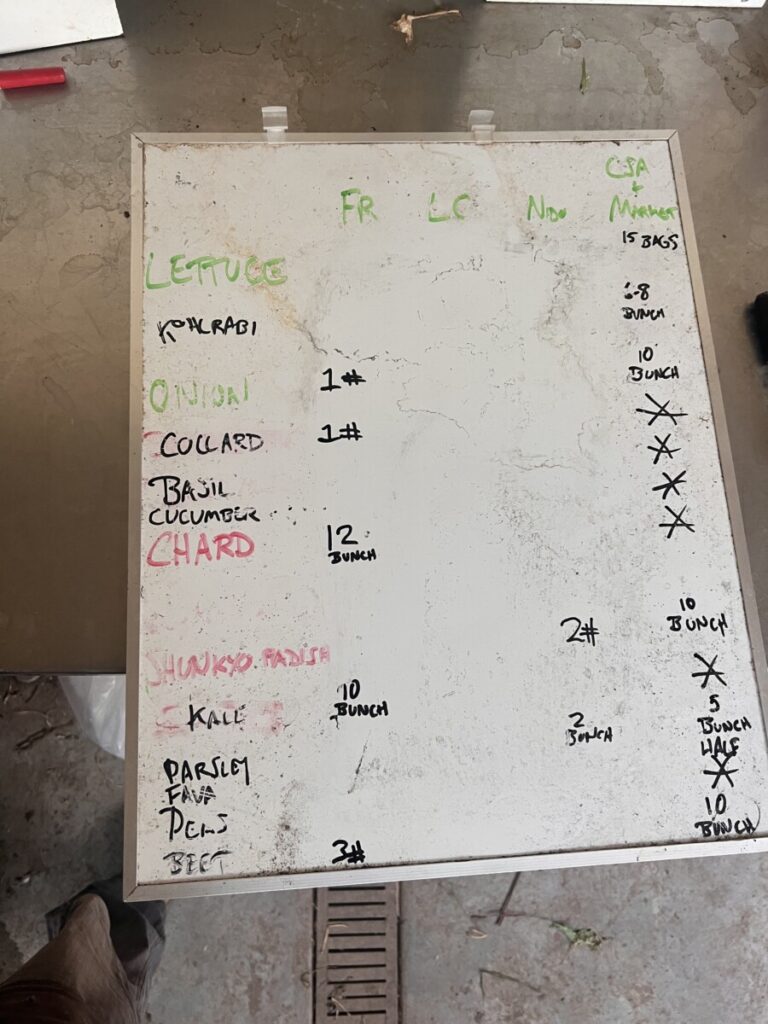 CSA
+
FR LC NIDO MARKET
15 BAGS
LETTUCE
6-8
BUNCH
KOHLRABI
10
BUNCH
ONION 1#
COLLARD 1#
BASIL
CUCUMBER
CHARD 12
BUNCH
10
BUNCH
2#
SHUNKYO RADISH
KALE 10
BUNCH
5
BUNCH
2
BUNCH
HALF
PARSLEY
FAVA
10
BUNCH
PEAS
BEET 3#